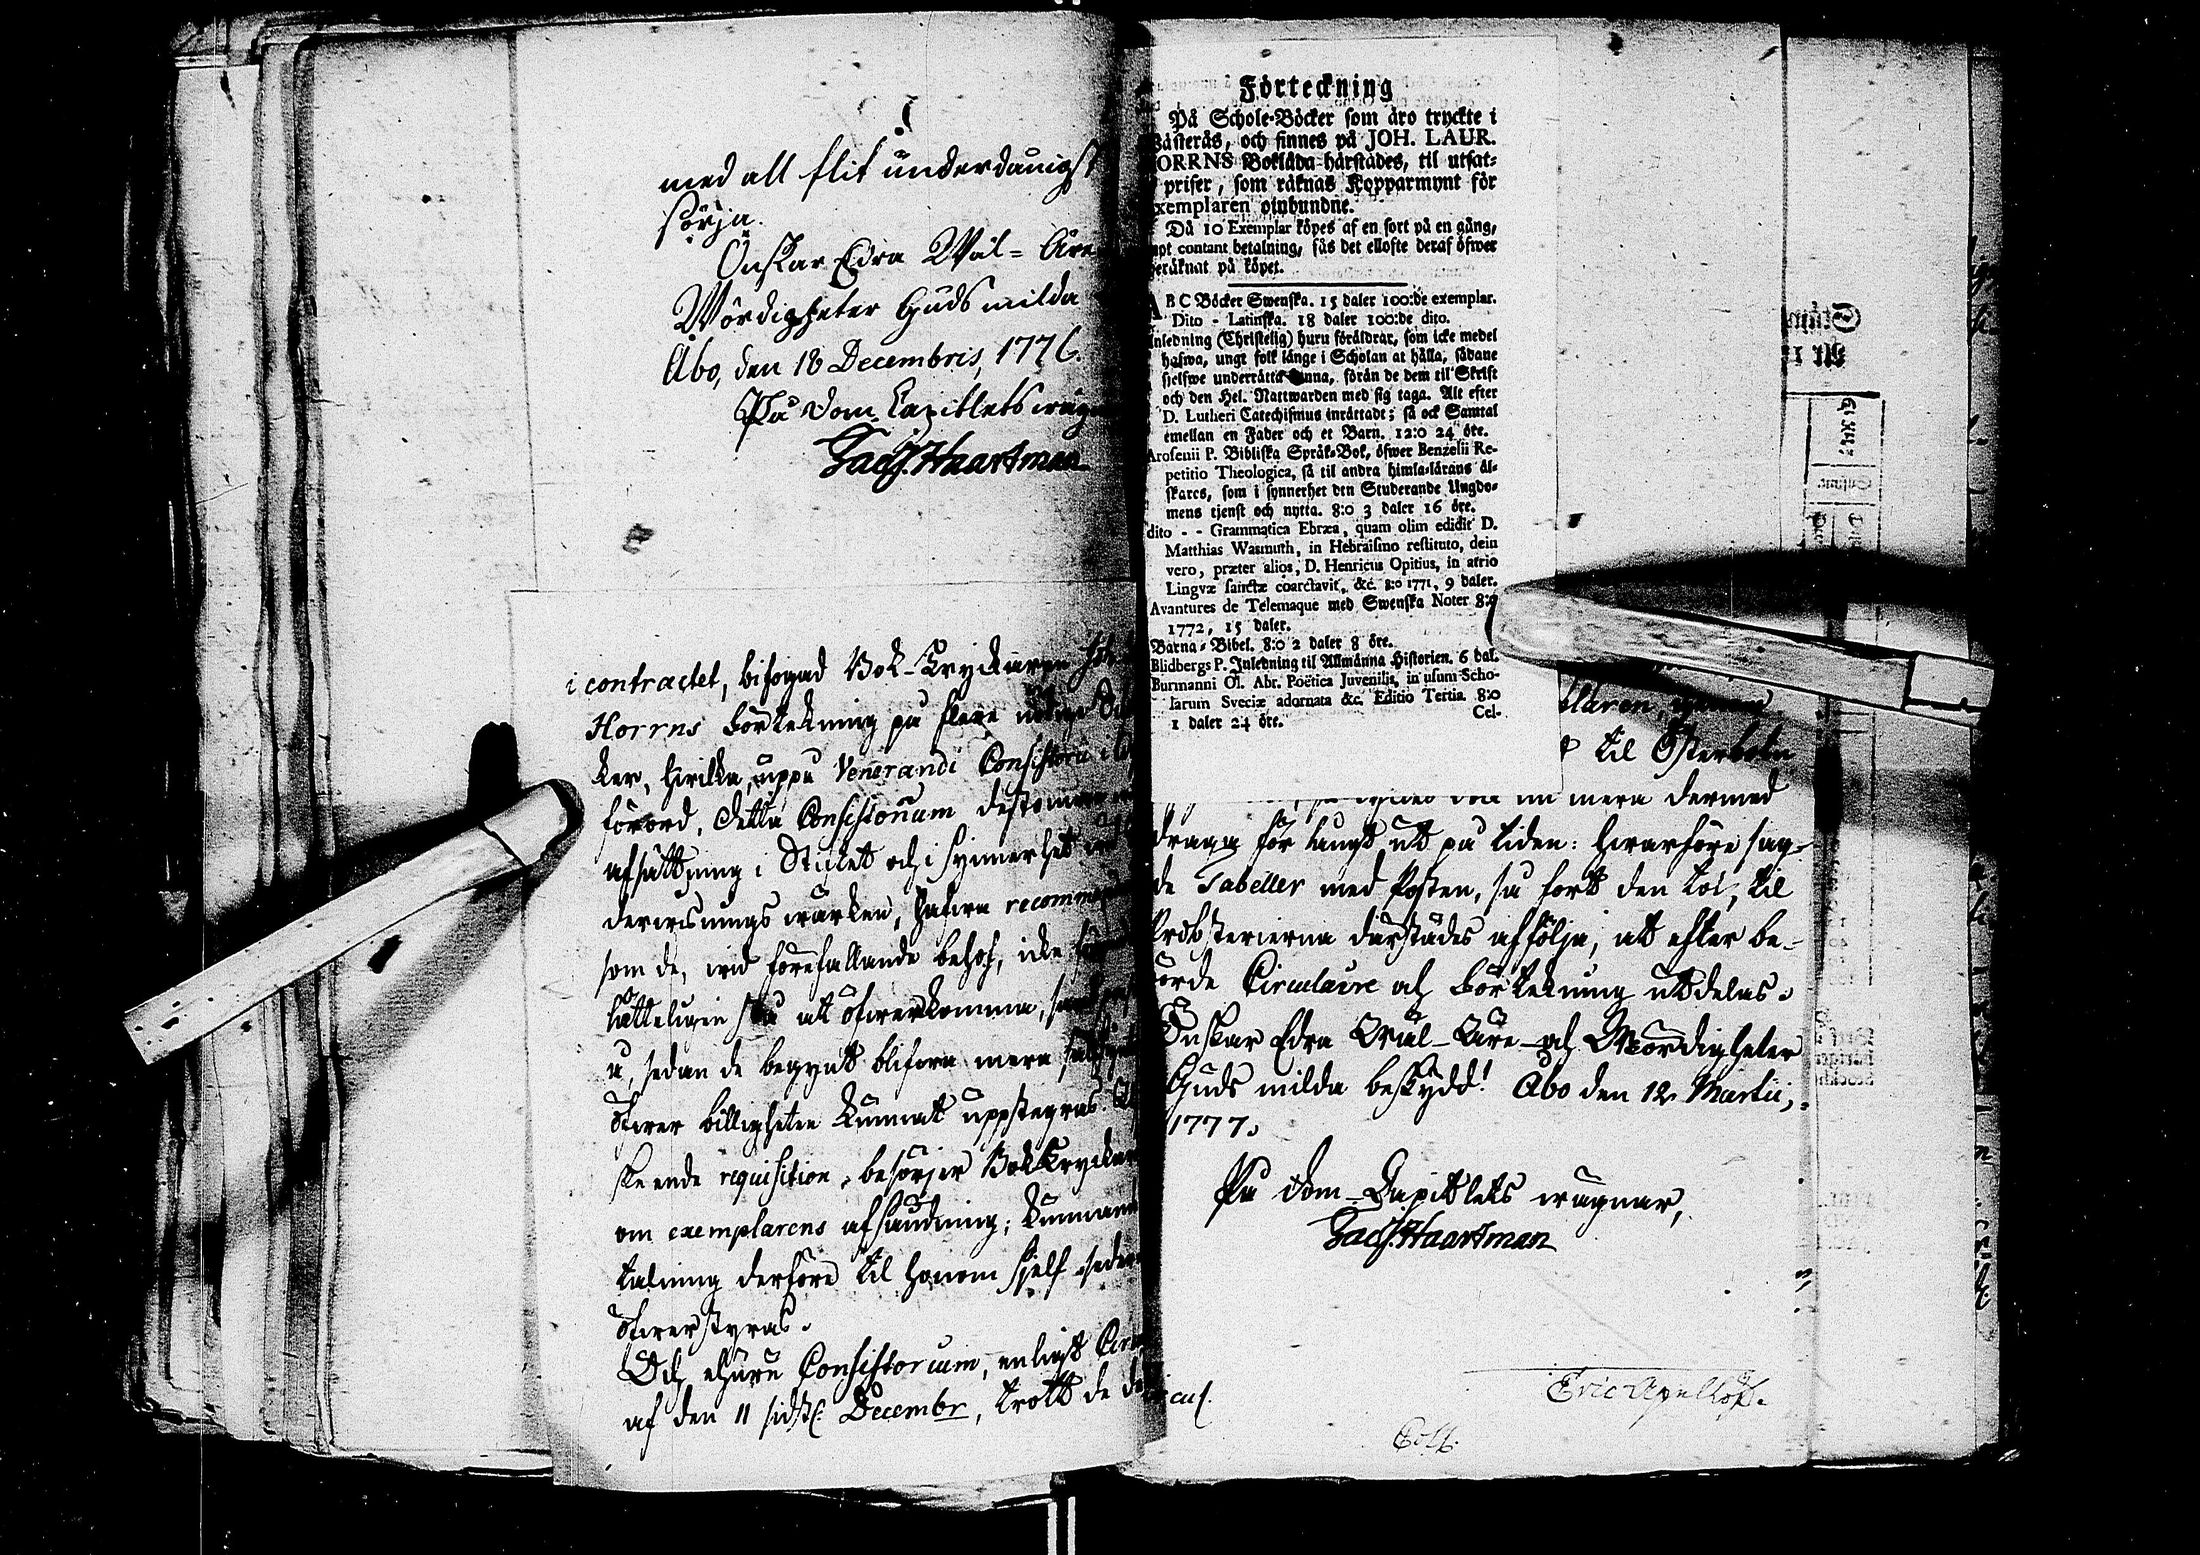 med all flit underdånigst
sörja.
Önskar Edra Wäl-Äre
Wördigheter Guds milda
Åbo, den 18 Decembris, 1776.
På Dom Capitlets wägn
Jac. Haartman
i contractet, bifogad Bok-Tryckaren
Horrns Förtekning på flere nödige
ker, hwilka, uppå Venerandi Consistorii
förord, detta Consistorium
afsättning i Stichtet och i synnerhet
derwisnings wärcken, hafwa
som de, wid förefallande behof, icke
hälteligen stå att öfwerkomma,
a, sedan de begynt blifwa mera
öfwer billigheten kunnat uppstegras.
skeende requisition, besörjer Bok Tryckar
om exemplarens afsändning;
talning derföre til honom sjelf
öfwerstyras.
Och ehuru Consistorium, enligt
af den 11 sidstl. Decembr, trott de
Förteckning
På Schole-Böcker som äro tryckte i
Wästerås, och finnes på JOH. LAUR.
HORRNS Boklåda härstädes, til utsat-
priser, som räknas Kopparmynt för
exemplaren oinbundne.
Då 10 Exemplar köpes af en sort på en gång,
mot contant betalning, fås det ellofte deraf öfwer
beräknat på köpet.
ABC Böcker Swenska. 15 daler 100:de exemplar.
Dito - Latinska. 18 daler 100:de dito.
Inledning (Christelig) huru föräldrar, som icke medel
hafwa, ungt folk länge i Scholan at hålla, sådane
sjelfwe underrätta kunna, förän de dem til Skrift
och den Hel. Nattwarden med sig taga. Alt efter
D. Lutheri Catechismus inrättadt; så ock Samtal
emellan en Fader och et Barn. 12:o 24 öre.
Arosenii P. Bibliska Språk-Bok, öfwer Benzelii Re-
petitio Theologica, så til andra himla-lärans äl-
skares, som i synnerhet den Studerande Ungdo-
mens tjenst och nytta. 8:o 3 daler 16 öre.
dito - - Grammatica Ebræa, quam olim edidit D.
Matthias Wasmuth, in Hebraismo restituto, dein
vero, præter alios, D. Henricus Opitius, in atrio
Lingvæ sanctæ coarctavit, &c. 8:o 1771, 9 daler.
Avantures de Telemaque med Swenska Noter 8:o
1772, 15 daler.
Barna-Bibel. 8:o 2 daler 8 öre.
Blidbergs P. Inledning til Allmänna Historien. 6 dal.
Burmanni Ol. Abr. Poëtica Juvenilis, in usum Scho-
larum Sveciæ adornata &c. Editio Tertia. 8:o
1 daler 24 öre.
Cel-
til Österbotn
mera dermed
draga för långt ut på tiden: hwarföre sag-
de Tabeller med Posten, så fort den lös, til
Probsterierna därstädes afföljа, att efter be-
örde Circulaire och Förtekning utdelas.
Önskar Edra Wäl-Äre- och Wördigheter
Guds milda beskydd! Åbo den 12 Martii,
1777.
På Dom-Capitlets wägnar,
Jac. Haartman